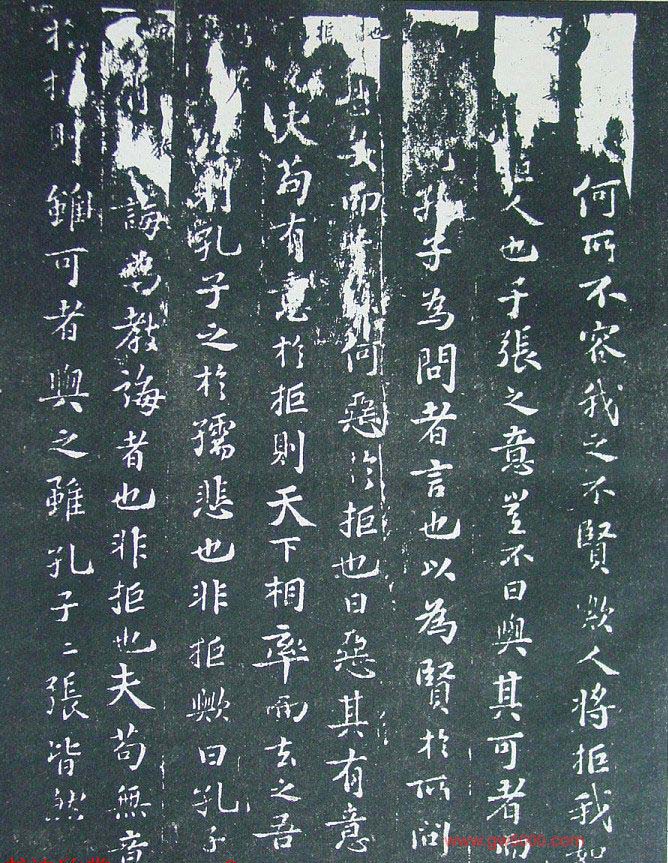 何所不容我之不賢歟人将拒我如
人也子張之意豈不曰與其可者而
孔子為問者言也以為賢於所問
而 何惡於拒也曰惡其有意
夫苟有意於拒則天下相率而去之吾
孔子之於孺悲也非拒歟曰孔子
誨為教誨者也非拒也夫苟無意
於拒則雖可者與之雖孔子二張皆然
www.gw8000.com